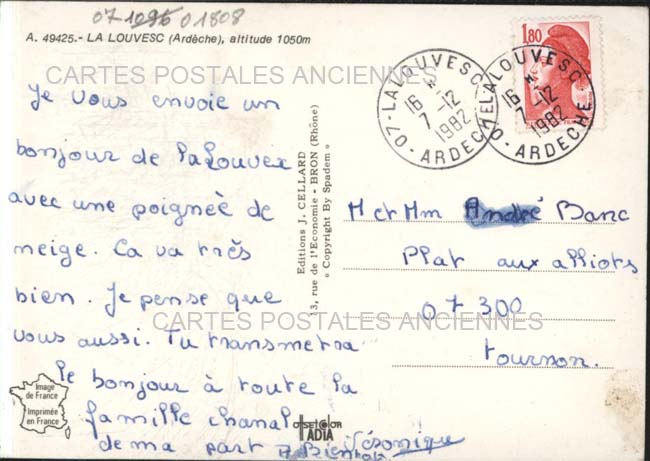 07 1095 01808
A. 49425.- LA LOUVESC (Ardèche), altitude 1050m
CARTES POSTALES ANCIENNES
Je vous envoie un
bonjour de Lalouvex
avec une poignée de
neige. Ca va très
bien. Je pense que
vous aussi. Tu transmetra
le bonjour à toute la
famille chanal
de ma part A Bientot
Véronique
Image
de France
Imprimée
en France
Editions J. CELLARD
13, rue de l'Economie - BRON (Rhône)
« Copyright By Spadem »
OFFSETCOLOR
IADIA
1,80
07-LALOUVESC
16 *
7-12
1982
ARDECHE
07-LALOUVESC
16 *
7-12
1982
ARDECHE
M et Mm André Banc
Plat aux alliots
07 300
tournon.
CARTES POSTALES ANCIENNES